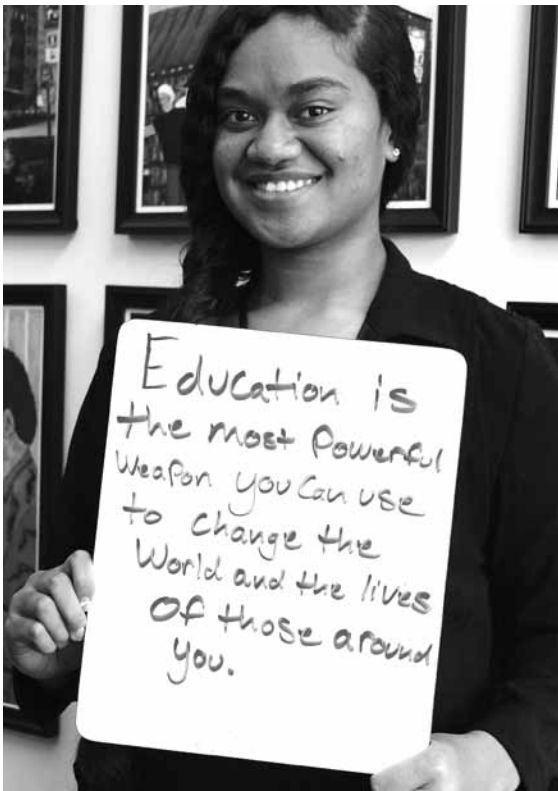 Education is
the most Powerful
Weapon you Can use
to change the
World and the lives
Of those around
you.